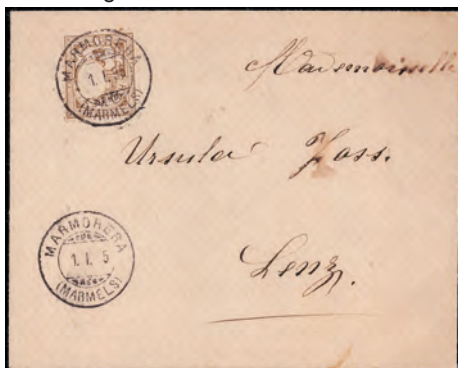 MARMORERA
1. I.
(MARMELS)
Mademoiselle
Ursula Joss.
MARMORERA
1. I. 5
(MARMELS)
Lenz.